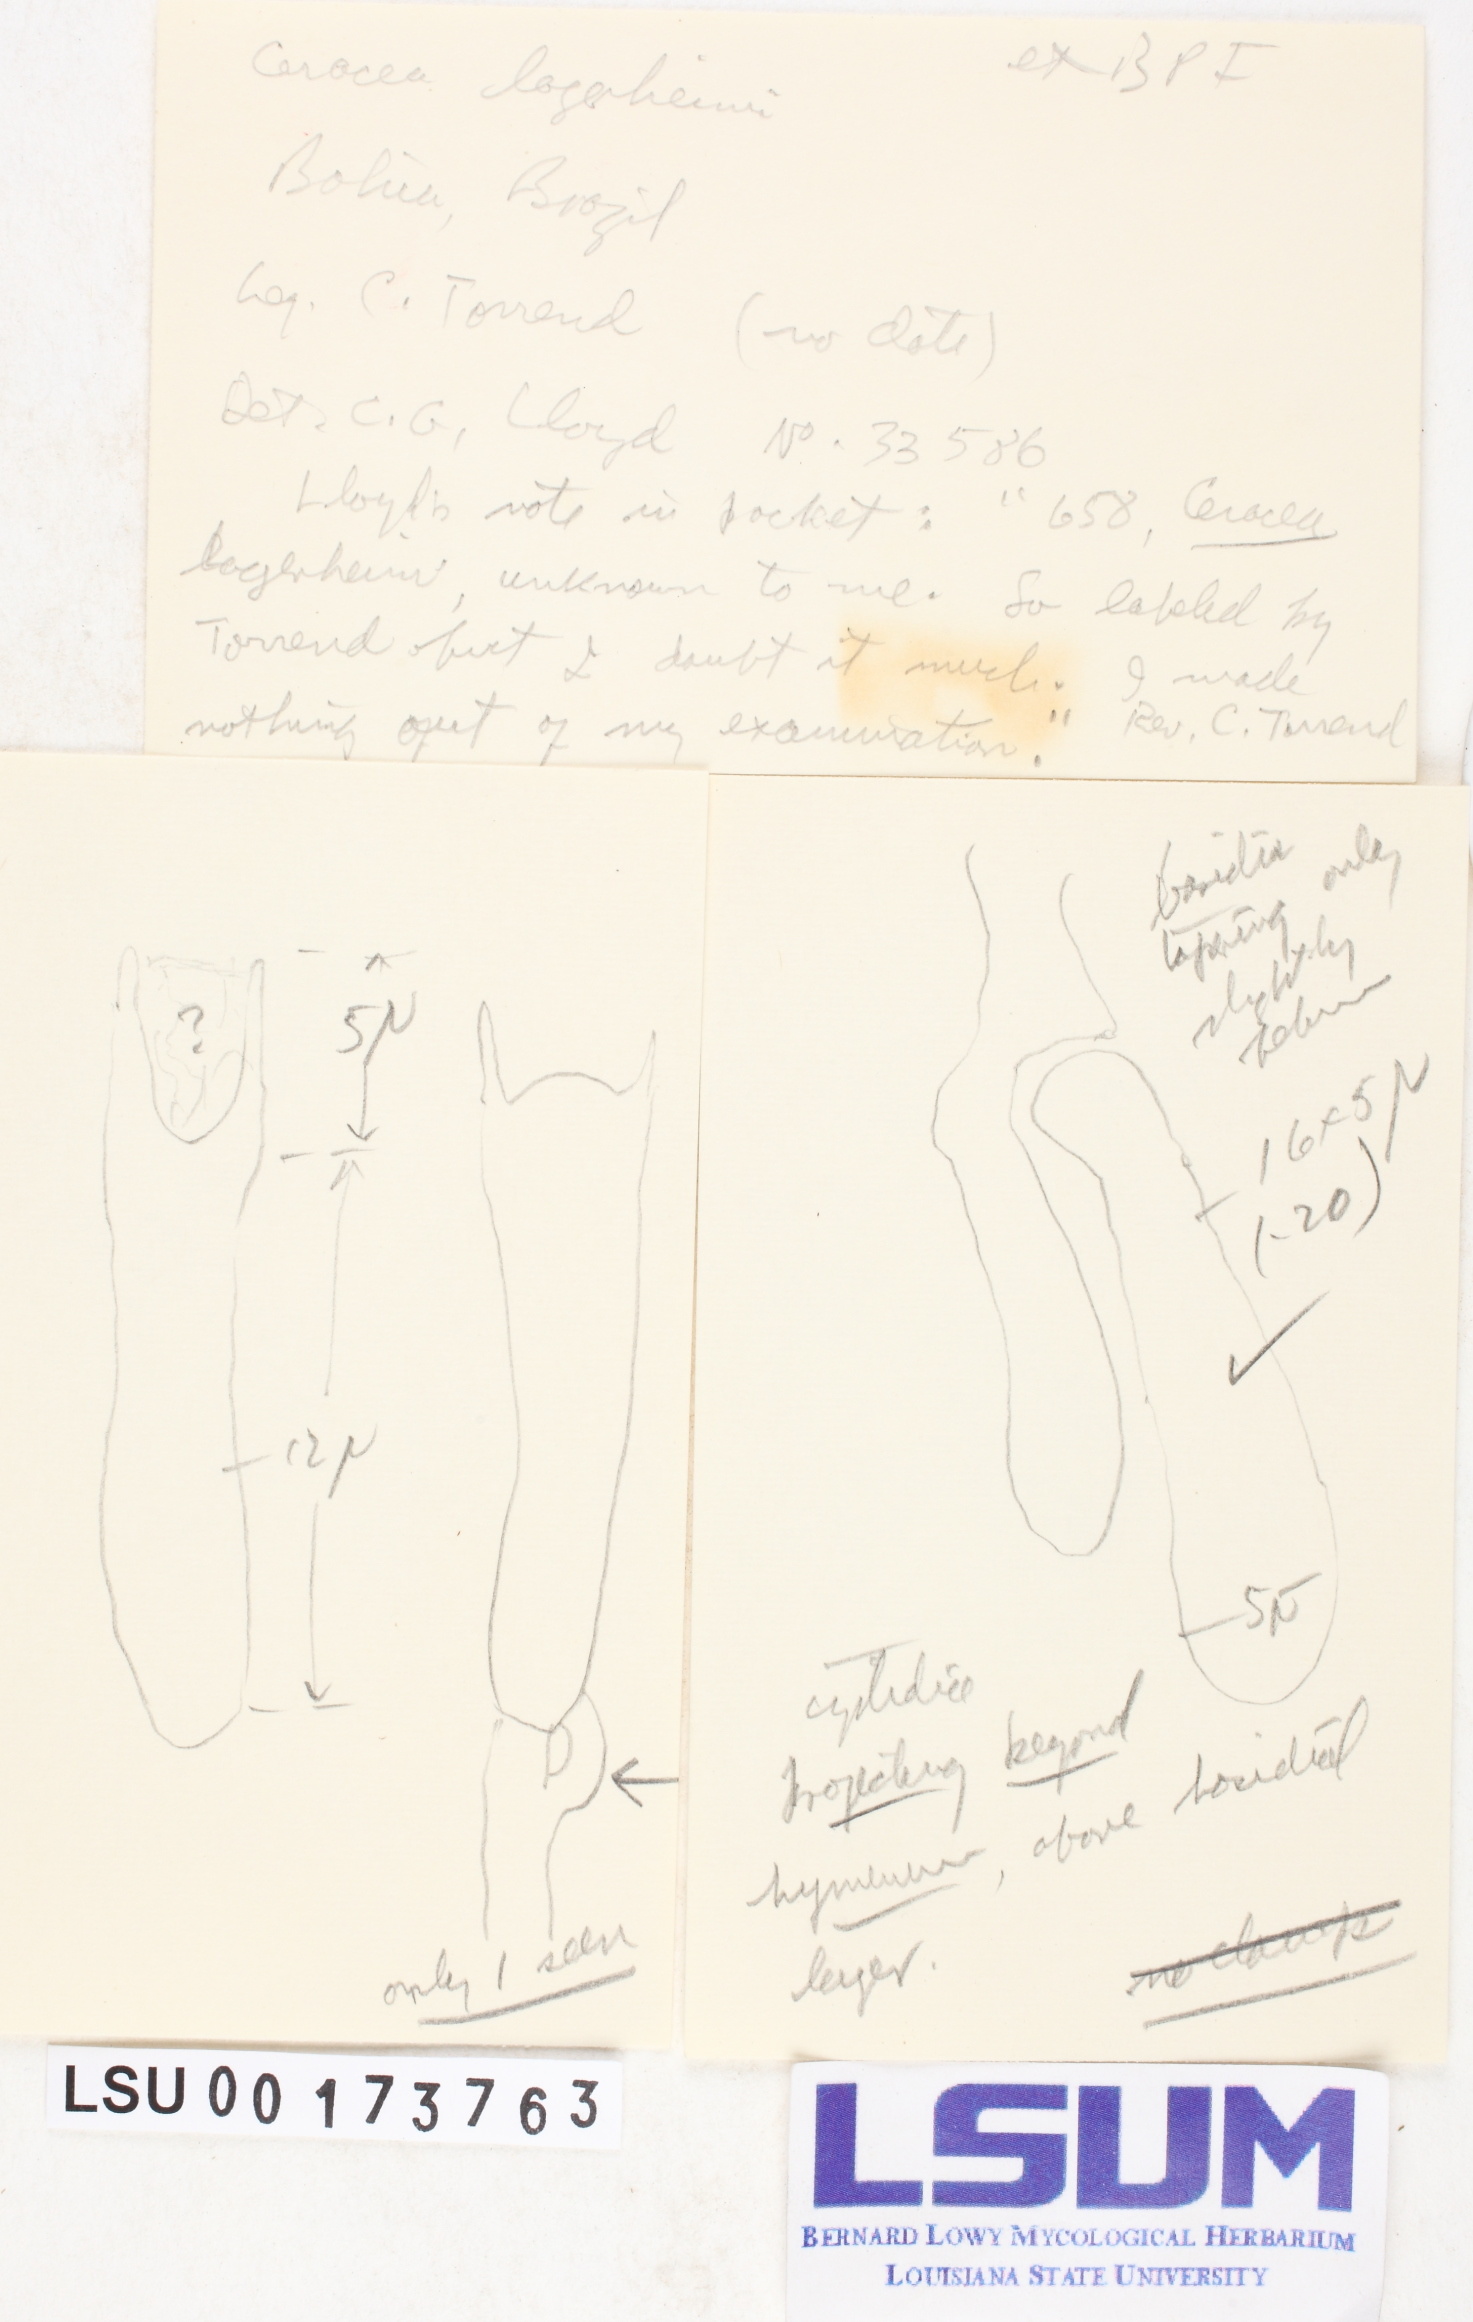 Ceracea lagerheimi ex BPI
Bahia, Brazil
Leg. C. Torrend (no date)
Det. C.G. Lloyd No. 33586
Lloyd's note in packet: "658, Ceracea
lagerheimi, unknown to me. So labeled by
Torrend but I doubt it much. I made
nothing out of my examination." Rev. C. Torrend
?
5μ
12μ
only 1 seen
basidia only
tapering
slightly
below
16×5μ
(-20)
5μ
cystidia
projecting beyond
hymenium, above basidial
layer.
no clamps
LSU00173763
LSUM
BERNARD LOWY MYCOLOGICAL HERBARIUM
LOUISIANA STATE UNIVERSITY